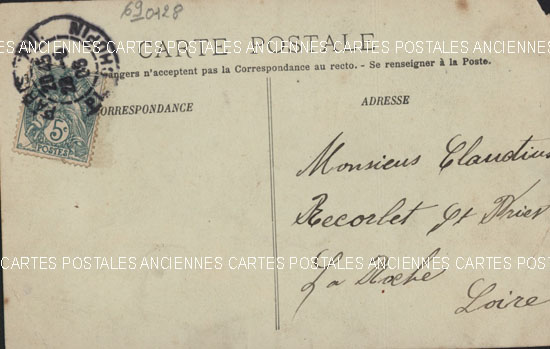 690128
CARTE POSTALE
angers n'acceptent pas la Correspondance au recto. - Se renseigner à la Poste.
ORRESPONDANCE
ADRESSE
5c
POSTES
Monsieur Claudius
Recorbet
La Roche
Loire
CARTES POSTALES ANCIENNES CARTES POSTALES ANCIENNES CARTES POSTALES ANCIENNES
CARTES POSTALES ANCIENNES CARTES POSTALES ANCIENNES CARTES POSTALES ANCIENNES